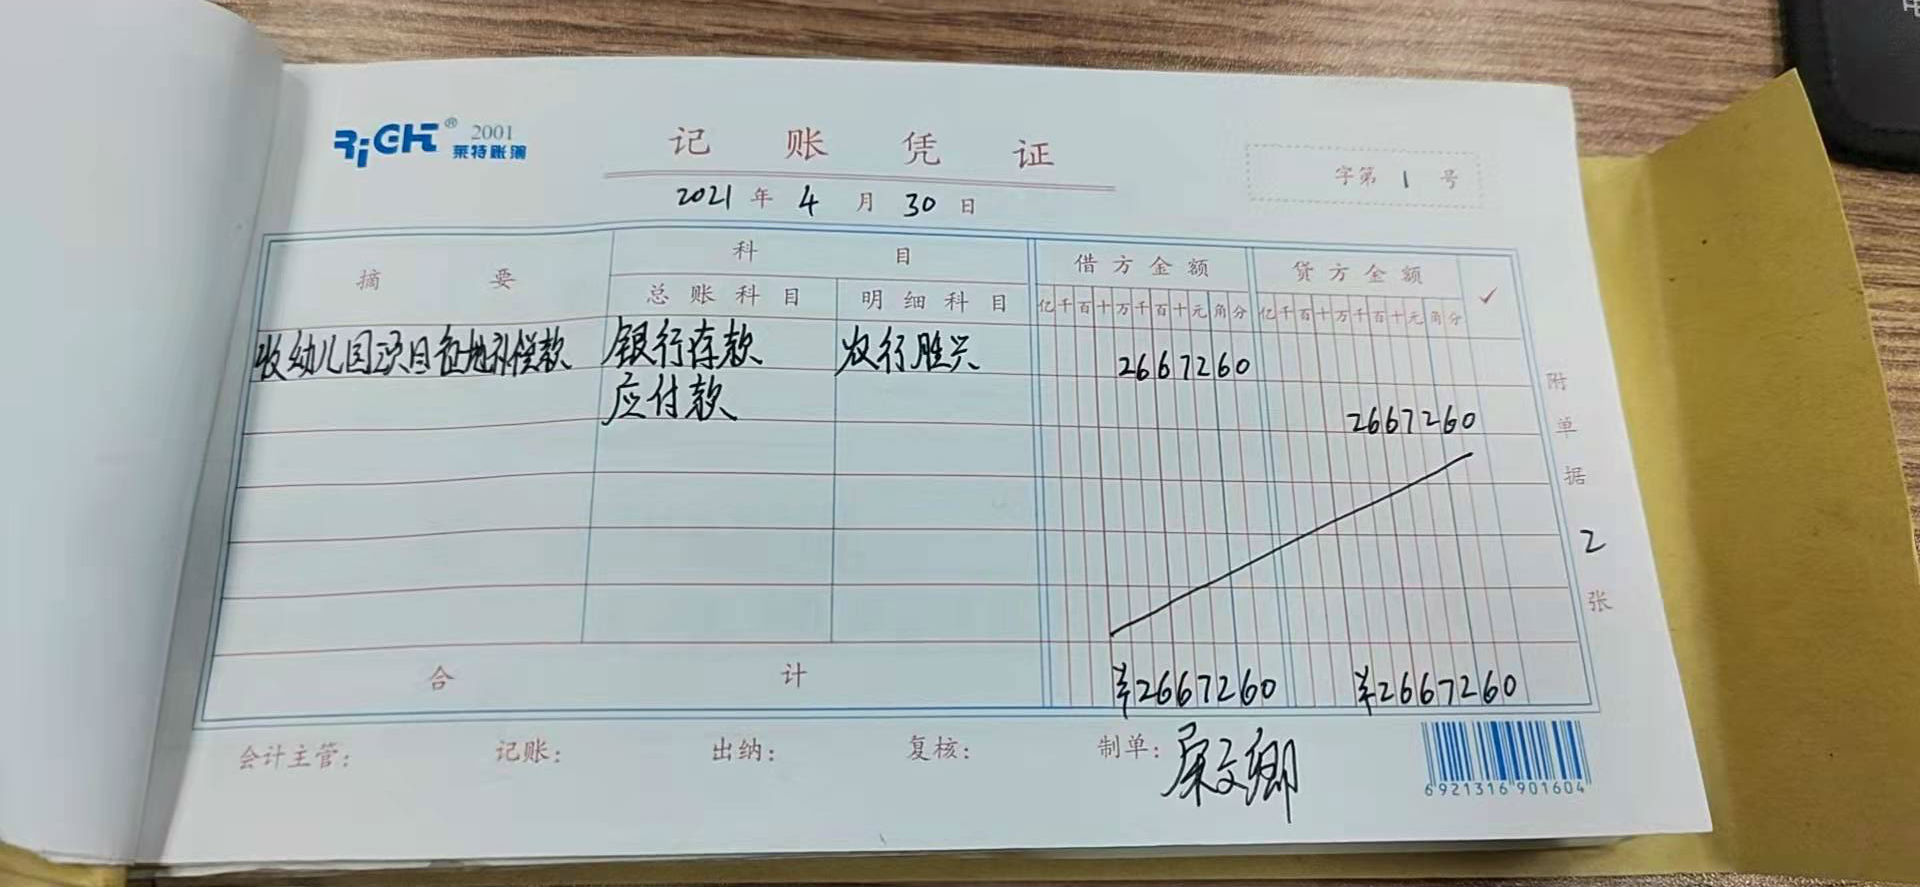 RiGHT® 2001
莱特账簿
记账凭证
字第 1 号
2021 年 4 月 30 日
摘要 科目 借方金额 贷方金额 ✓
总账科目 明细科目 亿千百十万千百十元角分 亿千百十万千百十元角分
收幼儿园项目征地补偿款 银行存款 农行胜兴 2667260
应付款 2667260
附单据 2 张
合计 ¥2667260 ¥2667260
会计主管: 记账: 出纳: 复核: 制单:
6921316901604